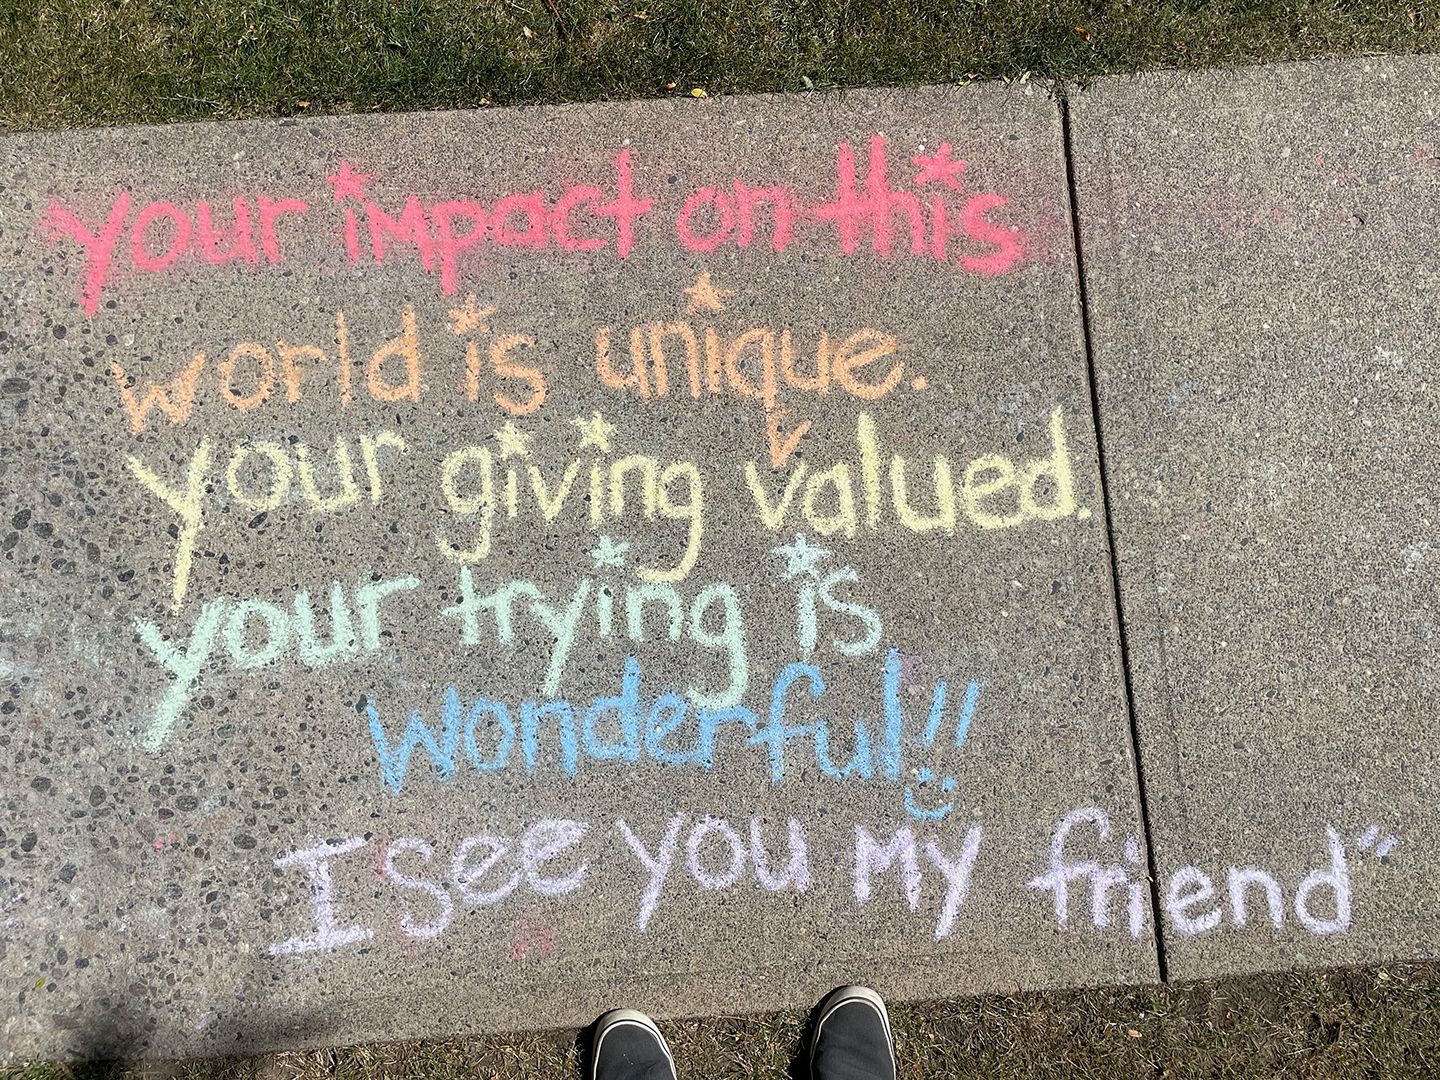 your impact on this
world is unique.
your giving valued.
your trying is
wonderful!!
I see you my friend"